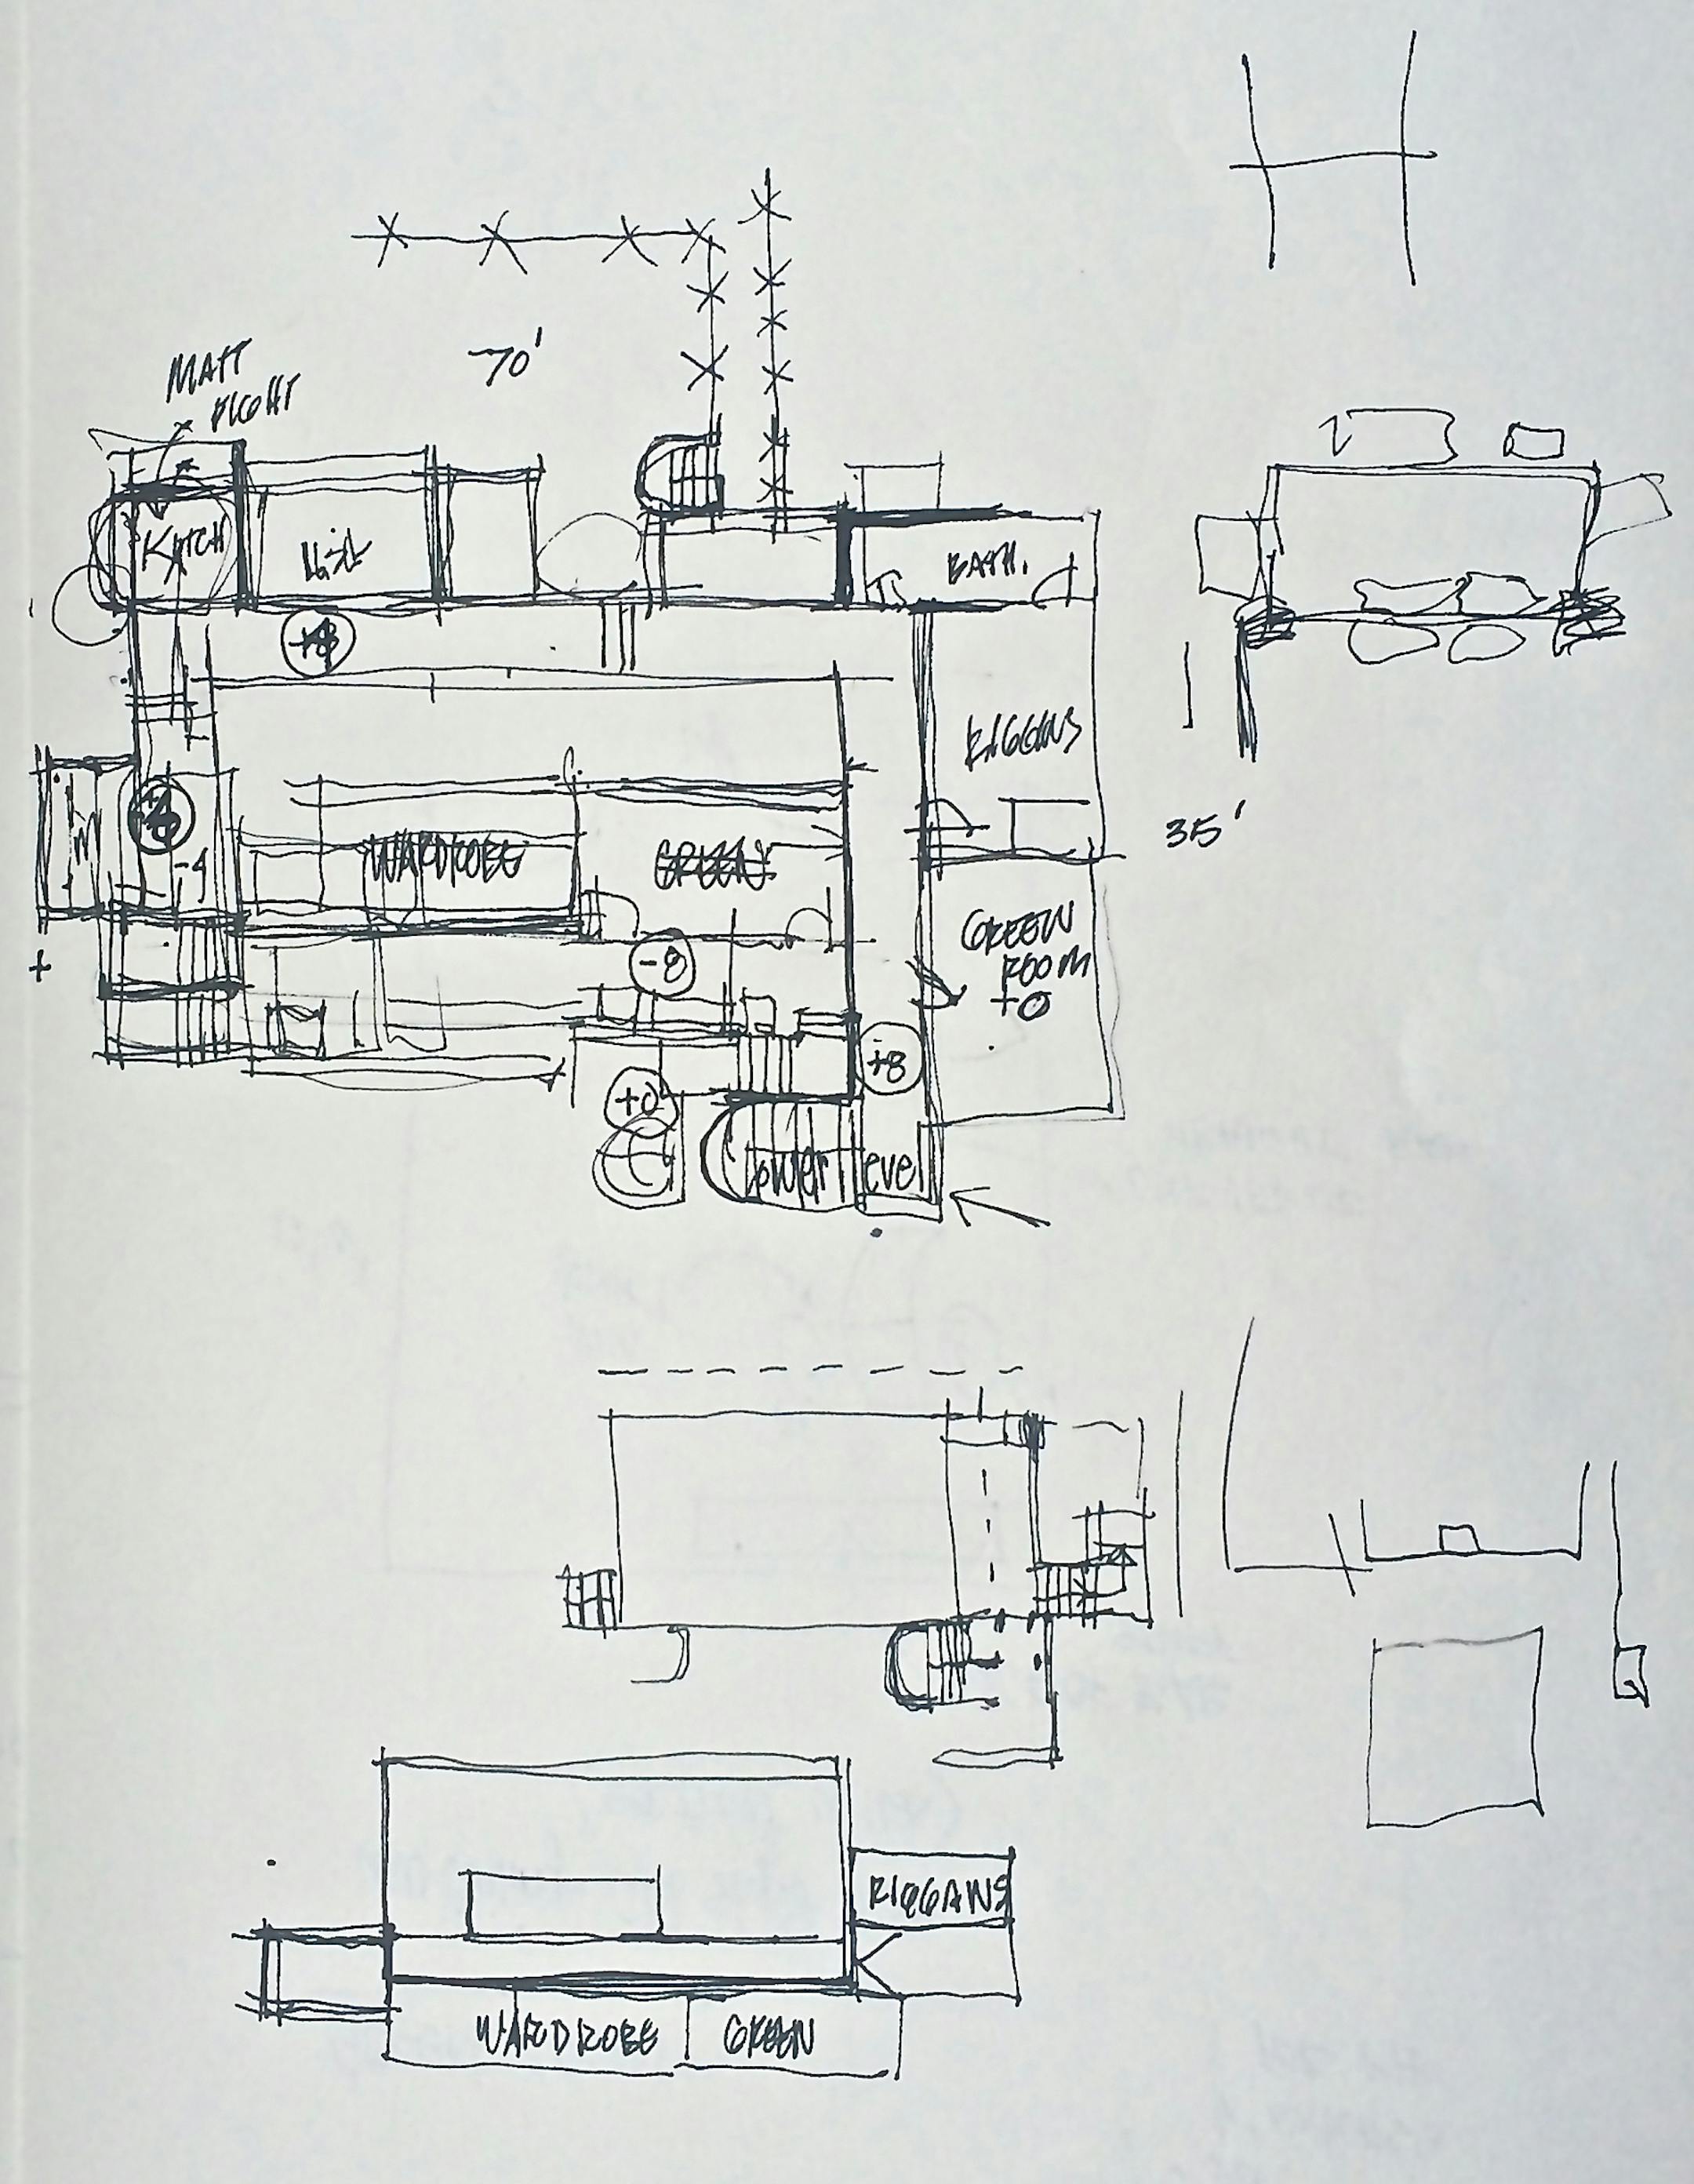 70'
MATT
FIGHT
KITCH
BATH.
+8
RIGGANS
35'
-4
WARDROBE
GREEN
GREEN
ROOM
+0
-8
+8
+0
Lower level
RIGGANS
WARDROBE
GREEN